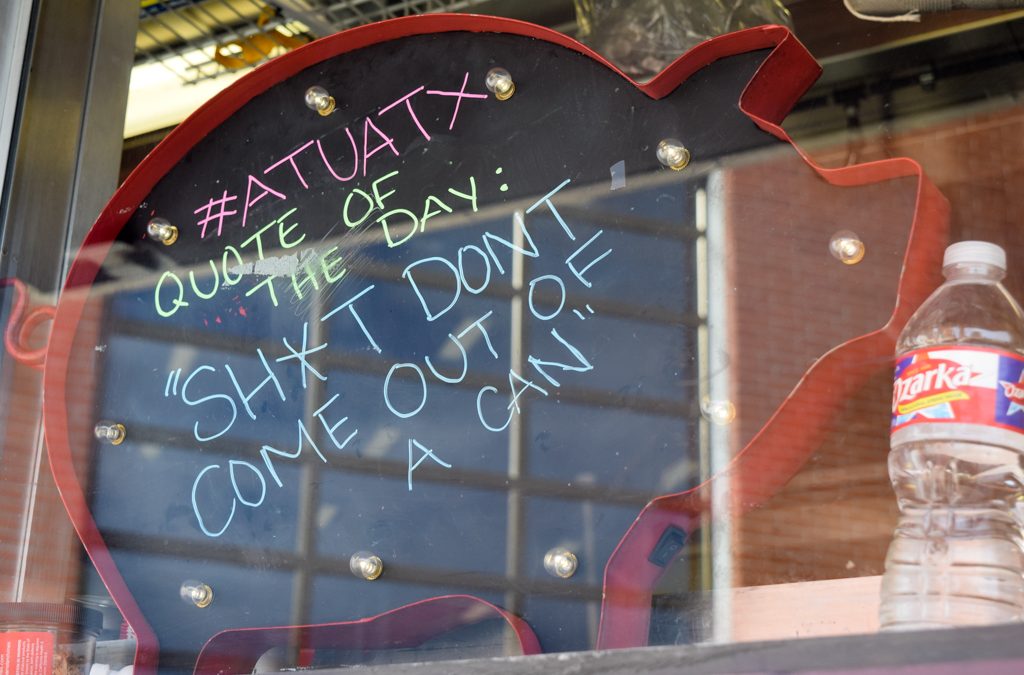 #ATUATX
QUOTE OF
THE DAY:
"SHXT DONT
COME OUT OF
A CAN"
Ozarka